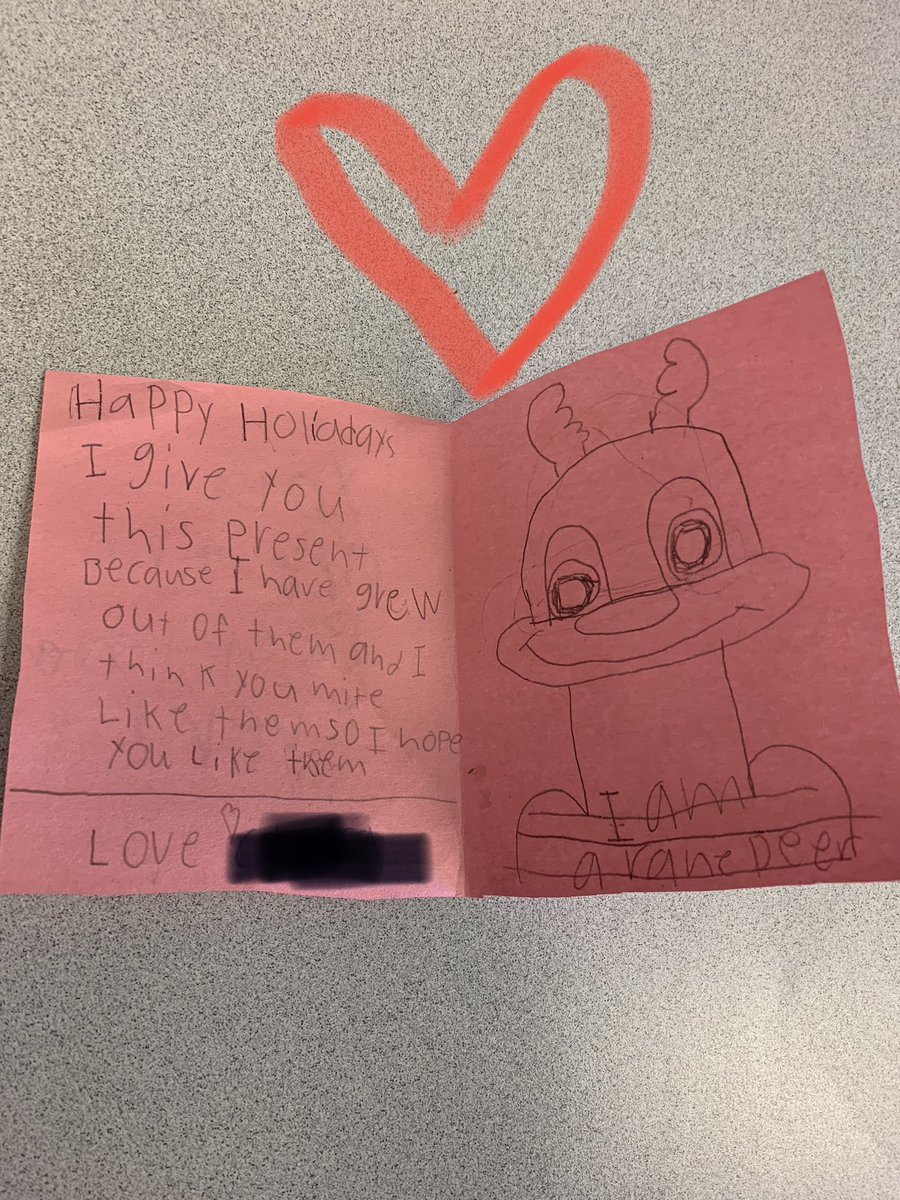 Happy Holiadays
I give you
this present
Because I have grew
out of them and I
think you mite
Like them so I hope
you Like them
Love
I am
a rane Deer